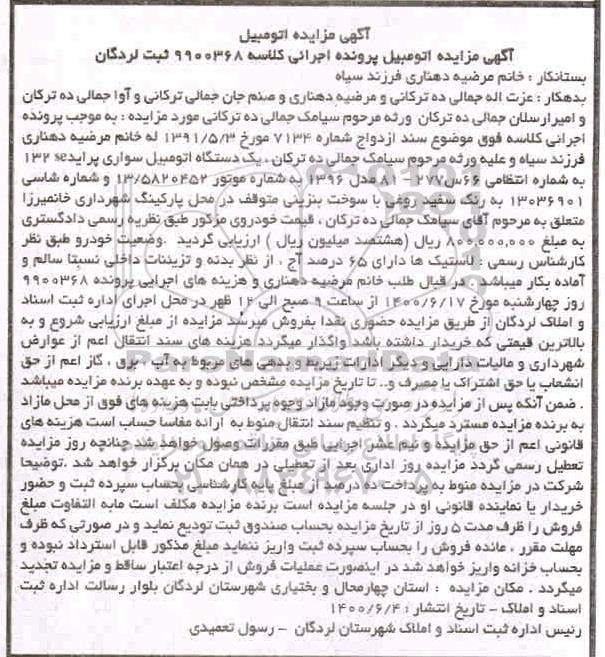 آگهی مزایده اتومبیل
آگهی مزایده اتومبیل پرونده اجرائی کلاسه ۹۹۰۰۳۶۸ ثبت لردگان
بستانکار : خانم مرضیه دهناری فرزند سیاه
بدهکار : عزت اله جمالی ده ترکانی و مرضیه دهناری و صنم جان جمالی ترکانی و آوا جمالی ده ترکان
و امیرارسلان جمالی ده ترکان ورثه مرحوم سیامک جمالی ده ترکانی مورد مزایده : به موجب پرونده
اجرائی کلاسه فوق موضوع سند ازدواج شماره ۷۱۳۴ مورخ ۱۳۹۱/۵/۳ له خانم مرضیه دهناری
فرزند سیاه و علیه ورثه مرحوم سیامک جمالی ده ترکان ، یک دستگاه اتومبیل سواری پراید۱۳۲ se
به شماره انتظامی ۶۶س۲۷۷ مدل ۱۳۹۶ به شماره موتور ۱۳/۵۸۲۰۴۵۲ و شماره شاسی
۱۳۰۳۶۹۰۱ به رنگ سفید روغنی با سوخت بنزینی متوقف در محل پارکینگ شهرداری خانمیرزا
متعلق به مرحوم آقای سیامک جمالی ده ترکان ، قیمت خودروی مزکور طبق نظریه رسمی دادگستری
به مبلغ ۸۰۰,۰۰۰,۰۰۰ ریال (هشتصد میلیون ریال ) ارزیابی گردید .وضعیت خودرو طبق نظر
کارشناس رسمی : لاستیک ها دارای ۶۵ درصد آج ، از نظر بدنه و تزیینات داخلی نسبتا سالم و
آماده بکار میباشد . در قبال طلب خانم مرضیه دهناری و هزینه های اجرایی پرونده ۹۹۰۰۳۶۸
روز چهارشنبه مورخ ۱۴۰۰/۶/۱۷ از ساعت ۹ صبح الی ۱۲ ظهر در محل اجرای اداره ثبت اسناد
و املاک لردگان از طریق مزایده حضوری نقدا بفروش میرسد مزایده از مبلغ ارزیابی شروع و به
بالاترین قیمتی که خریدار داشته باشد واگذار میگردد هزینه های سند انتقال اعم از عوارض
شهرداری و مالیات دارایی و دیگر ادارات زیربط و بدهی های مربوط به آب ، برق ، گاز اعم از حق
انشعاب یا حق اشتراک یا مصرف و.. تا تاریخ مزایده مشخص نبوده و به عهده برنده مزایده میباشد
. ضمن آنکه پس از مزایده در صورت وجود مازاد وجوه پرداختی بابت هزینه های فوق از محل مازاد
به برنده مزایده مسترد میگردد . و تنظیم سند انتقال منوط به ارائه مفاسا حساب است هزینه های
قانونی اعم از حق مزایده و نیم عشر اجرایی طبق مقررات وصول خواهد شد چنانچه روز مزایده
تعطیل رسمی گردد مزایده روز اداری بعد از تعطیلی در همان مکان برگزار خواهد شد .توضیحا
شرکت در مزایده منوط به پرداخت ده درصد از مبلغ پایه کارشناسی بحساب سپرده ثبت و حضور
خریدار یا نماینده قانونی او در جلسه مزایده است برنده مزایده مکلف است مابه التفاوت مبلغ
فروش را ظرف مدت ۵ روز از تاریخ مزایده بحساب صندوق ثبت تودیع نماید و در صورتی که ظرف
مهلت مقرر ، مانده فروش را بحساب سپرده ثبت واریز ننماید مبلغ مذکور قابل استرداد نبوده و
بحساب خزانه واریز خواهد شد در اینصورت عملیات فروش از درجه اعتبار ساقط و مزایده تجدید
میگردد . مکان مزایده : استان چهارمحال و بختیاری شهرستان لردگان بلوار رسالت اداره ثبت
اسناد و املاک - تاریخ انتشار : ۱۴۰۰/۶/۴
رئیس اداره ثبت اسناد و املاک شهرستان لردگان - رسول تعمیدی